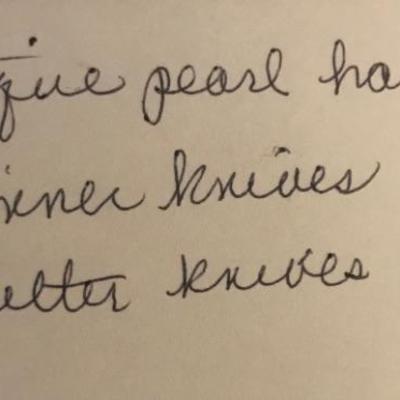 que pearl ha
nner knives
utter knives